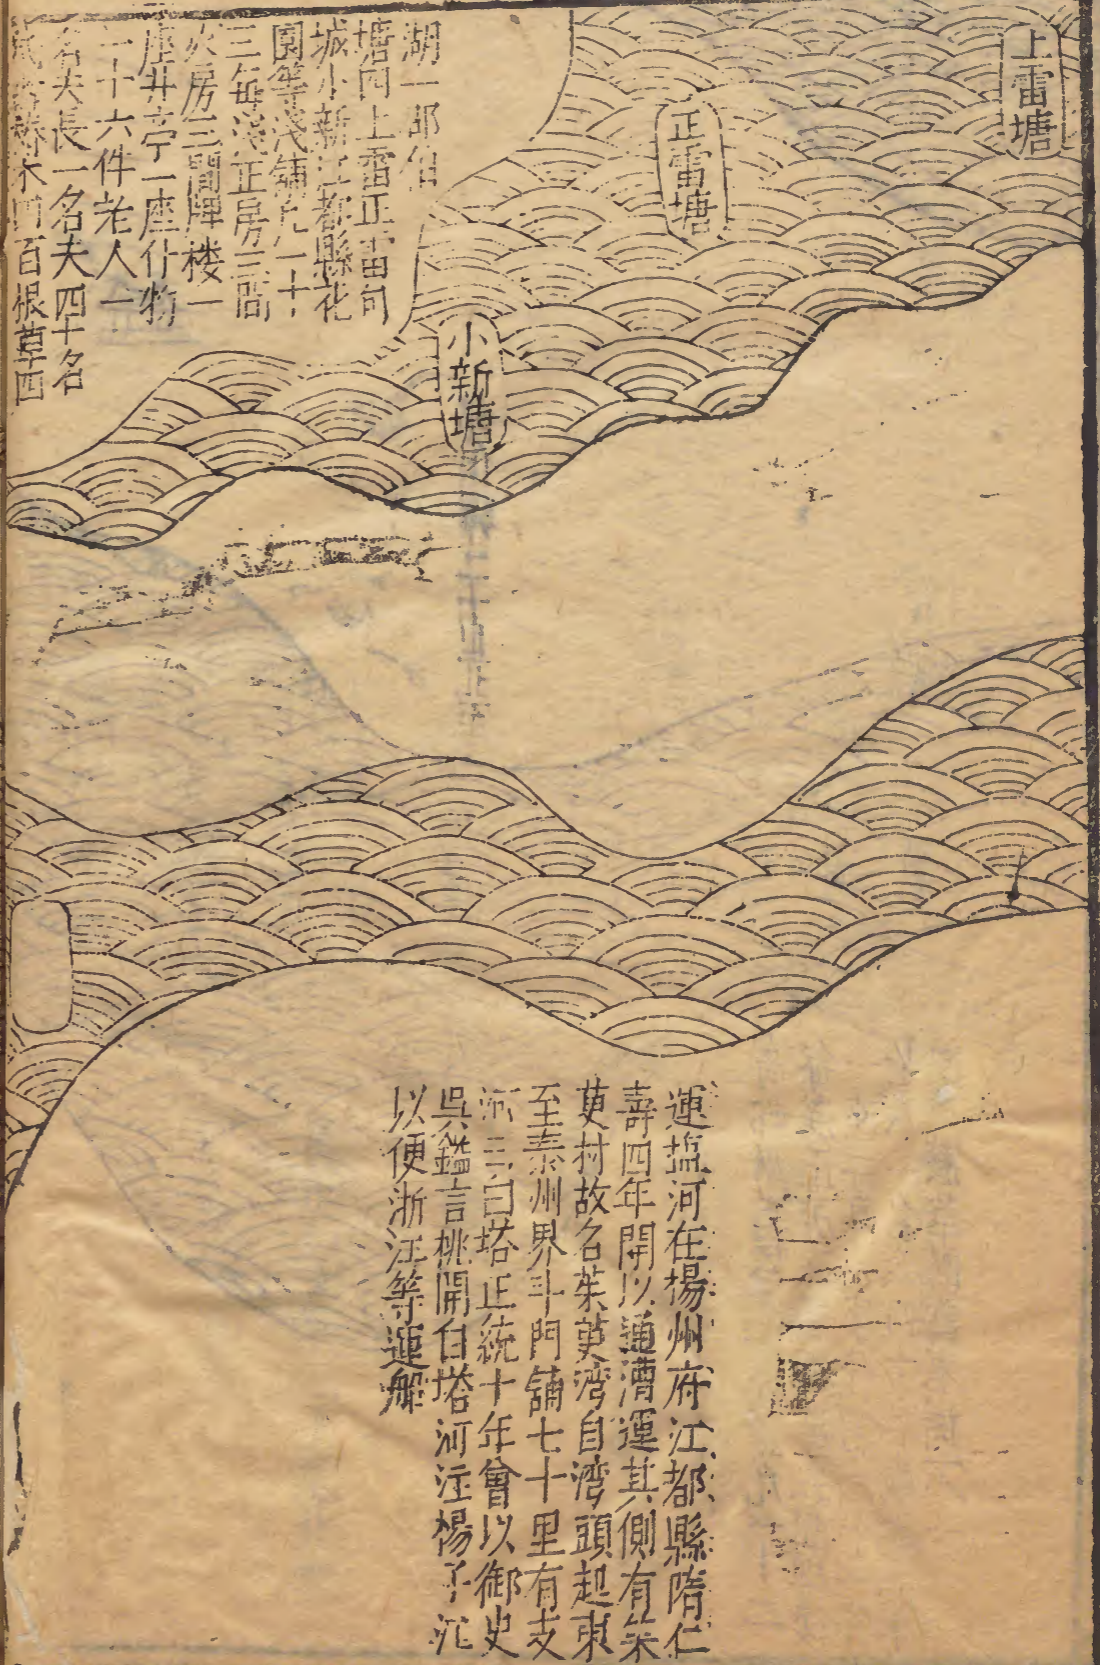 上雷塘
正雷塘
小新塘
湖一郎伯
塘四上雷正雷句
城小新江都縣花
園等淺舖九一十
三每淺正房三間
火房三間牌楼一
座井亭一座什物
一十六件老人一
名夫長一名夫四十名
木四百根草四
運塩河在楊州府江都縣隋仁
壽四年開以通漕運其側有茱
萸村故名茱萸湾自湾頭起東
至泰州界斗門舖七十里有支
河三曰塔正統十年曾以御史
吳鑑言桃開白塔河注楊子江
以便浙江等運觧